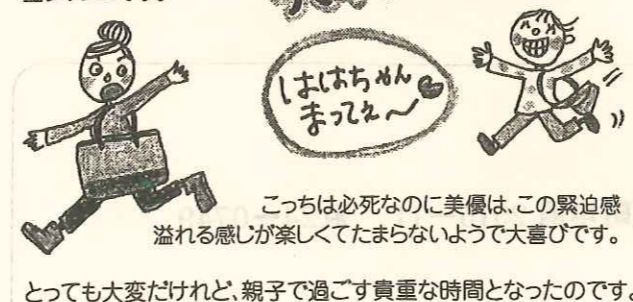 ははちゃん
まってぇ〜
こっちは必死なのに美優は、この緊迫感
溢れる感じが楽しくてたまらないようで大喜びです。
とっても大変だけれど、親子で過ごす貴重な時間となったのです。